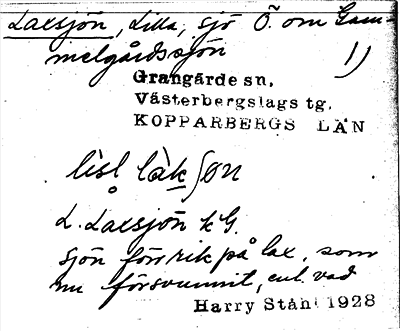 Laxsjön, Lilla, sjö Ö. om Gam-
melgårdssjön 1)
Grangärde sn,
Västerbergslags tg.
KOPPARBERGS LÄN
lìsl làkʃön
L. Laxsjön kG.
sjön förr rik på lax, som
nu försvunnit, enl. vad
Harry Ståhl 1928